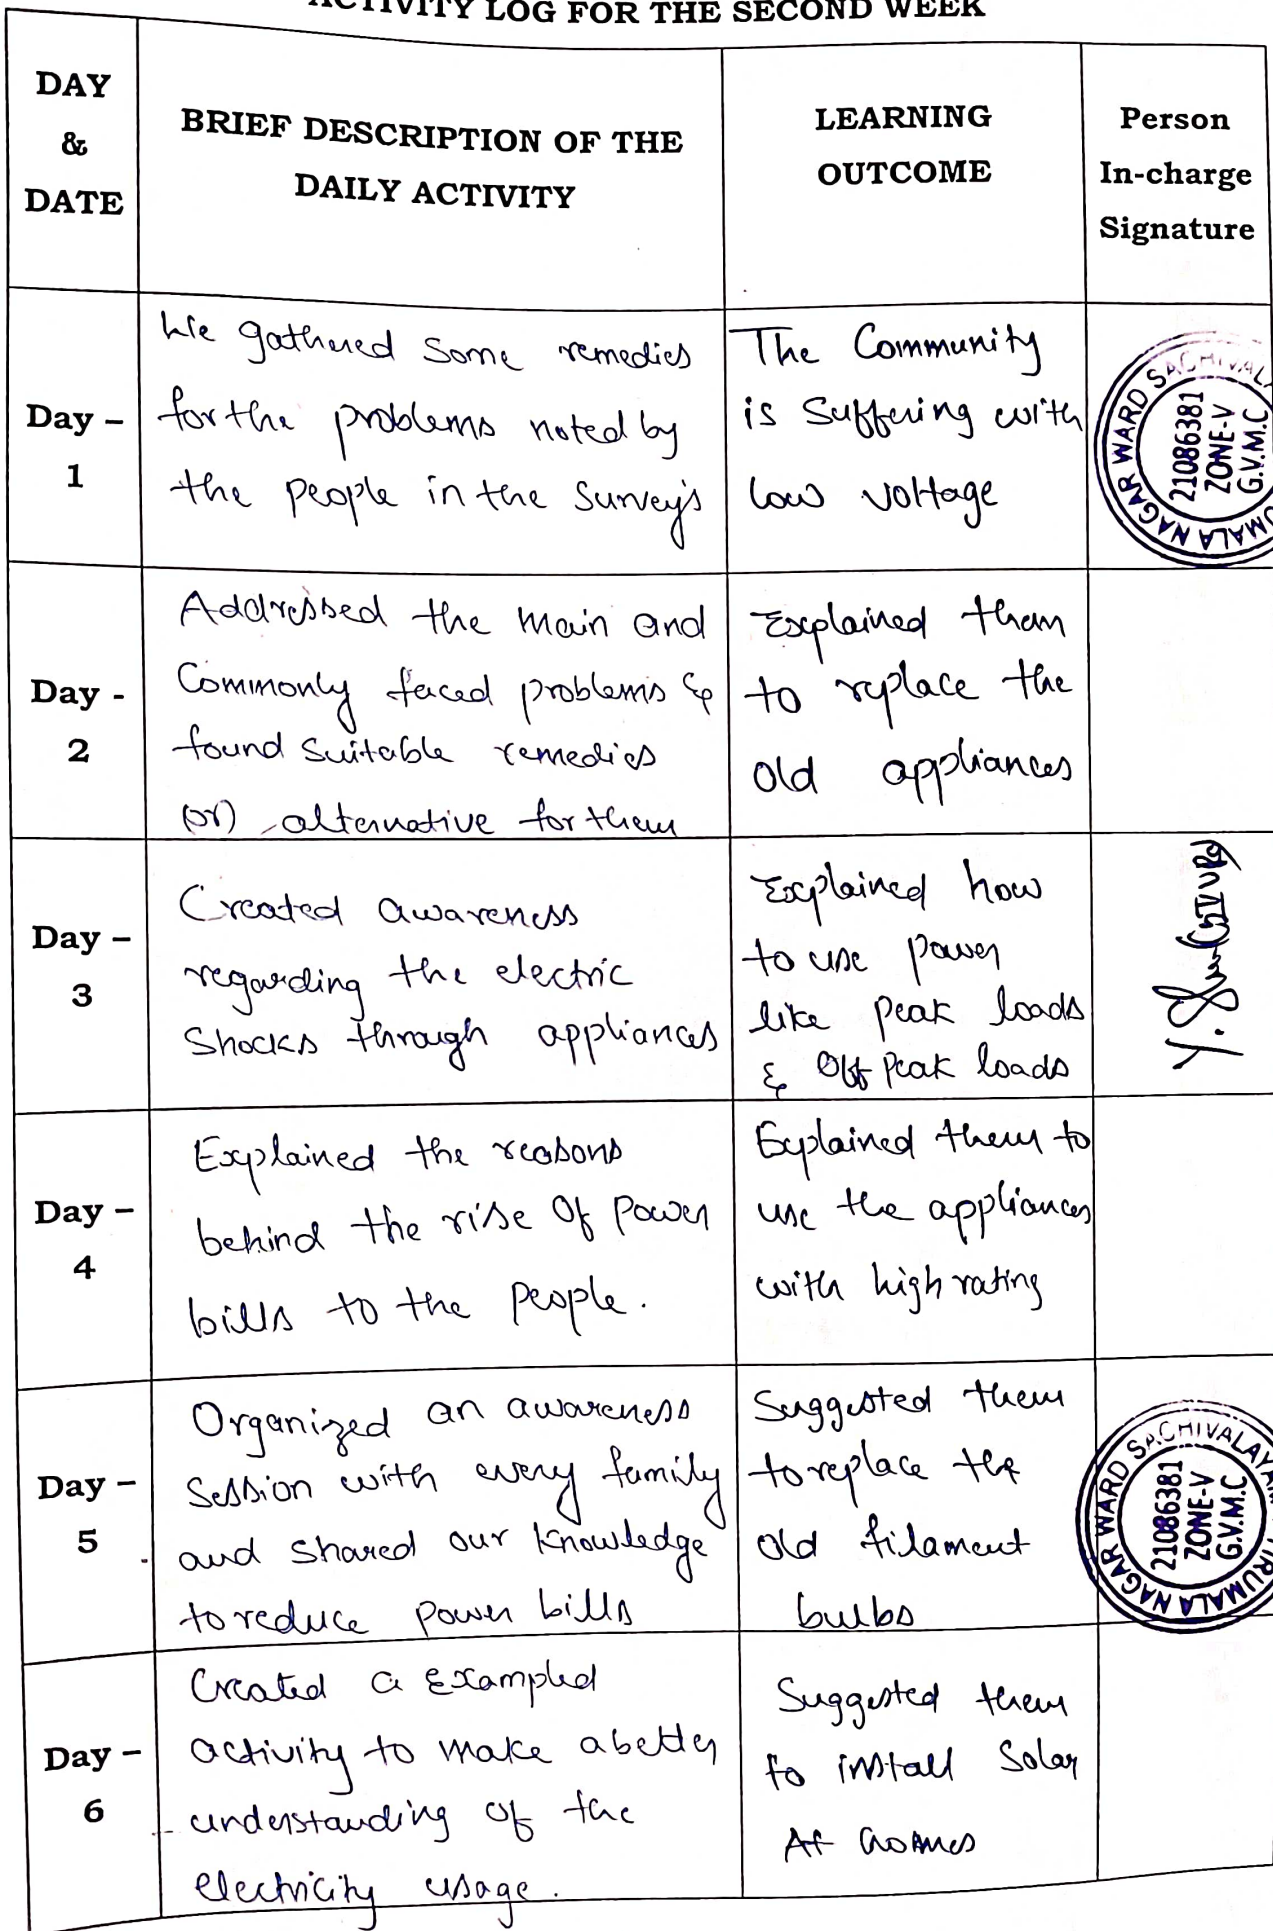 ACTIVITY LOG FOR THE SECOND WEEK
DAY
&
DATE
BRIEF DESCRIPTION OF THE
DAILY ACTIVITY
LEARNING
OUTCOME
Person
In-charge
Signature
Day –
1
We gathered some remedies
for the problems noted by
the people in the survey's
The Community
is suffering with
low voltage
WARD SACHIVALA
21086381
ZONE-V
G.V.M.C
UMALA NAGAR
Day -
2
Addressed the main and
Commonly faced problems &
found suitable remedies
(or) alternative for them
Explained them
to replace the
old appliances
Day –
3
Created awareness
regarding the electric
Shocks through appliances
Explained how
to use power
like peak loads
& Off peak loads
Y.
Day –
4
Explained the reasons
behind the rise of power
bills to the people.
Explained them to
use the appliances
with high rating
Day –
5
Organized an awareness
Session with every family
and shared our knowledge
to reduce power bills
Suggested them
to replace the
old filament
bulbs
WARD SACHIVALAYAM
21086381
ZONE-V
G.V.M.C
TIRUMALA NAGAR
Day –
6
Created a Exampled
activity to make a better
understanding of the
electricity usage.
Suggested them
to install Solar
At homes